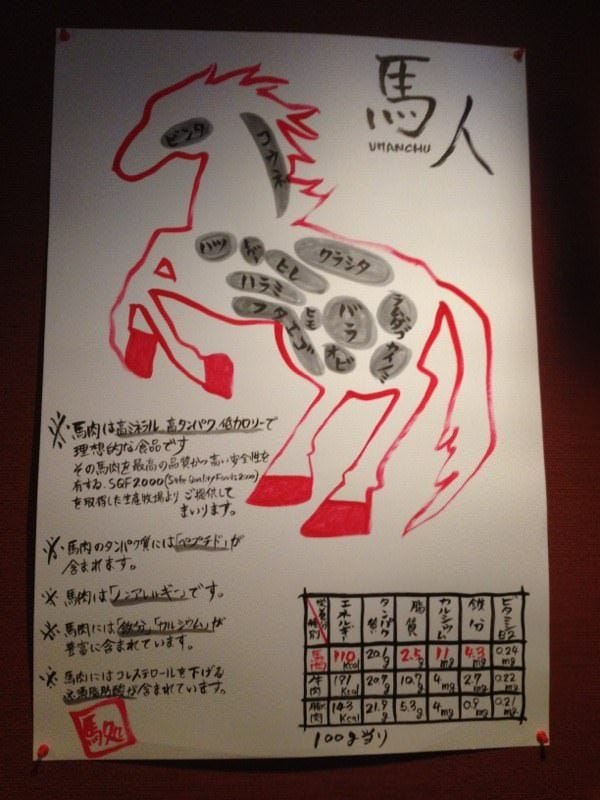 馬人
UMANCHU
ビンタ
コウネ
ハツ
レバー
ヒレ
クラシタ
ハラミ
フタエゴ
ヒモ
バラ
オビ
ラムダゴ
カイノミ
※・馬肉は高ミネラル 高タンパク 低カロリーで
理想的な食品です
その馬肉を最高の品質かつ高い安全性を
有する、SQF2000(Safe Quality Foods2000)
を取得した生産牧場より ご提供して
まいります。
※・馬肉のタンパク質には「ペプチド」が
含まれます。
※・馬肉は「ノンアレルギー」です。
※・馬肉には「鉄分」「カルシウム」が
豊富に含まれています。
※・馬肉にはコレステロールを下げる
不飽和脂肪酸が含まれています。
馬処
エネルギー タンパク質 脂質 カルシウム 鉄分 ビタミンB2
馬肉 110Kcal 20.6g 2.5g 11mg 4.3mg 0.24mg
牛肉 191Kcal 20.7g 10.7g 4mg 2.7mg 0.22mg
豚肉 143Kcal 21.9g 5.3g 4mg 0.9mg 0.21mg
100g当り